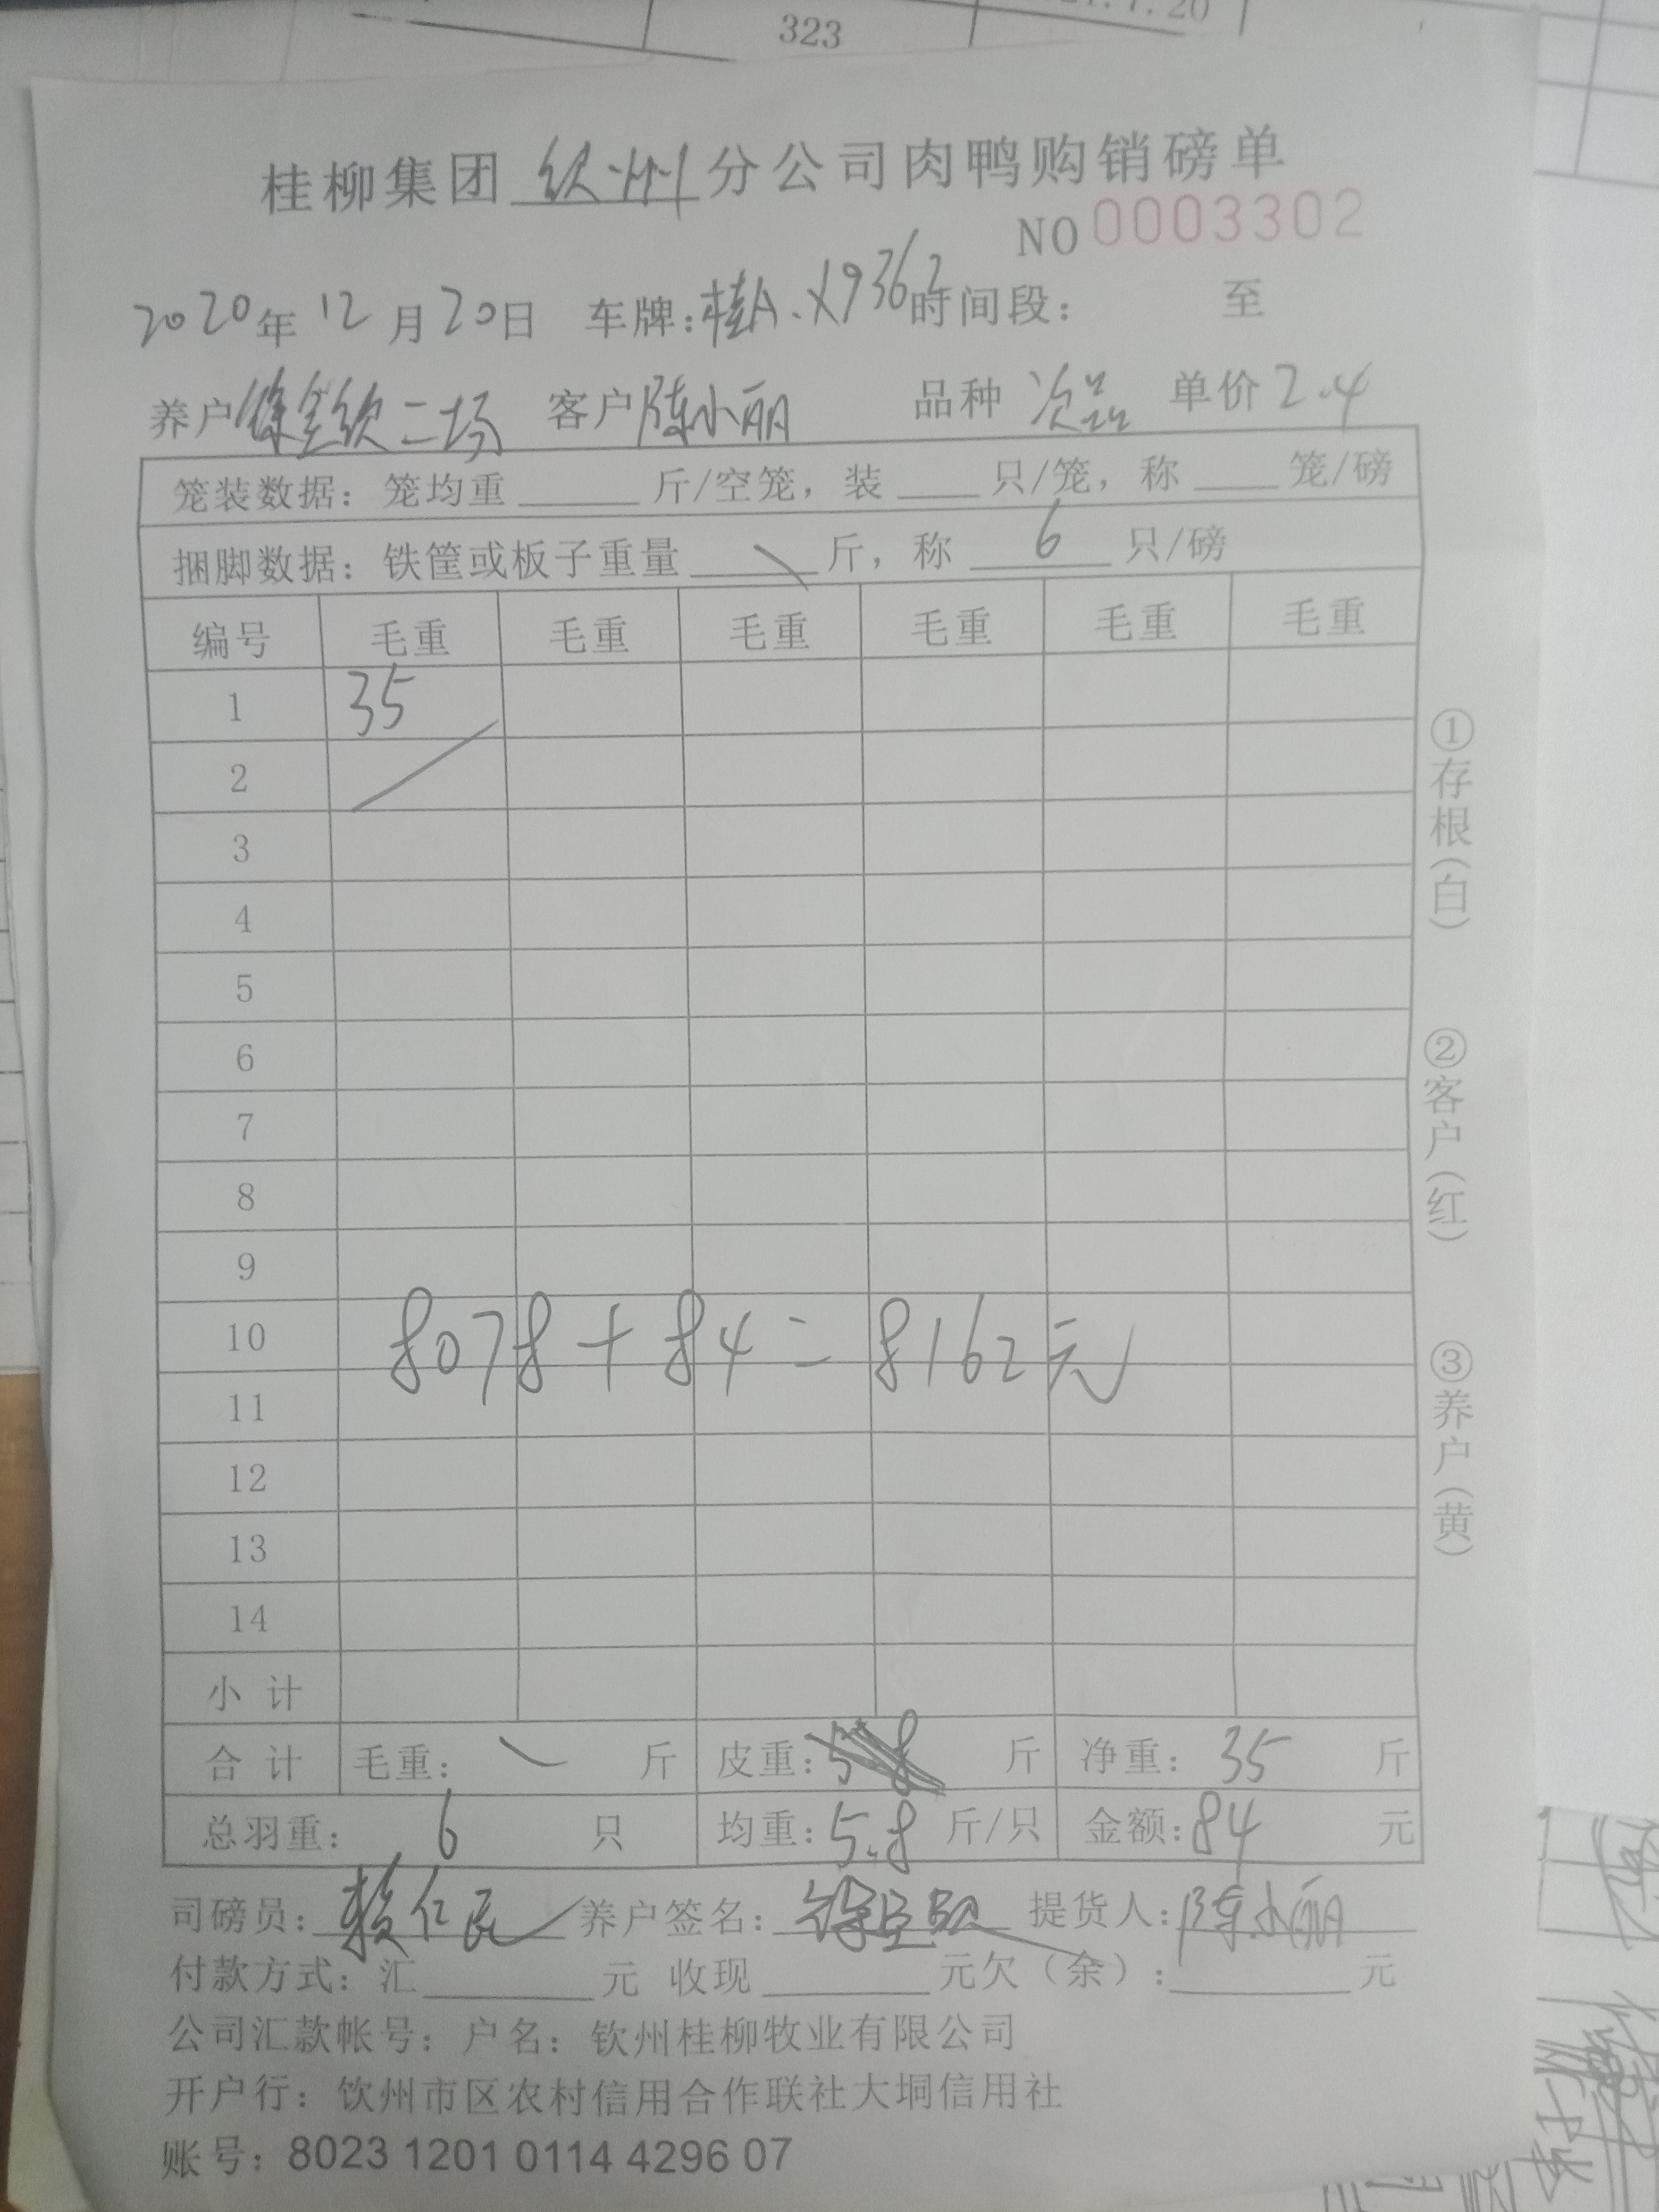 323
桂柳集团 钦州 分公司肉鸭购销磅单
NO 0003302
2020年 12月 20日 车牌:桂A.X9362 时间段: 至
养户 徐 钦二场 客户 陈小丽 品种 次品 单价 2.4
笼装数据: 笼均重____斤/空笼, 装___只/笼, 称___笼/磅
捆脚数据: 铁筐或板子重量 \ 斤, 称 6 只/磅
编号 毛重 毛重 毛重 毛重 毛重 毛重
1 35
2
3
4
5
6
7
8
9
10
8078+84=8162元
11
12
13
14
小计
合计 毛重: \ 斤 皮重: 斤 净重: 35 斤
总羽重: 6 只 均重: 5.8 斤/只 金额: 84 元
司磅员: 赖仁民 养户签名: 徐 提货人: 陈小丽
付款方式: 汇____元 收现____元欠(余):____元
公司汇款帐号: 户名: 钦州桂柳牧业有限公司
开户行: 钦州市区农村信用合作联社大垌信用社
账号: 8023 1201 0114 4296 07
①存根(白)
②客户(红)
③养户(黄)